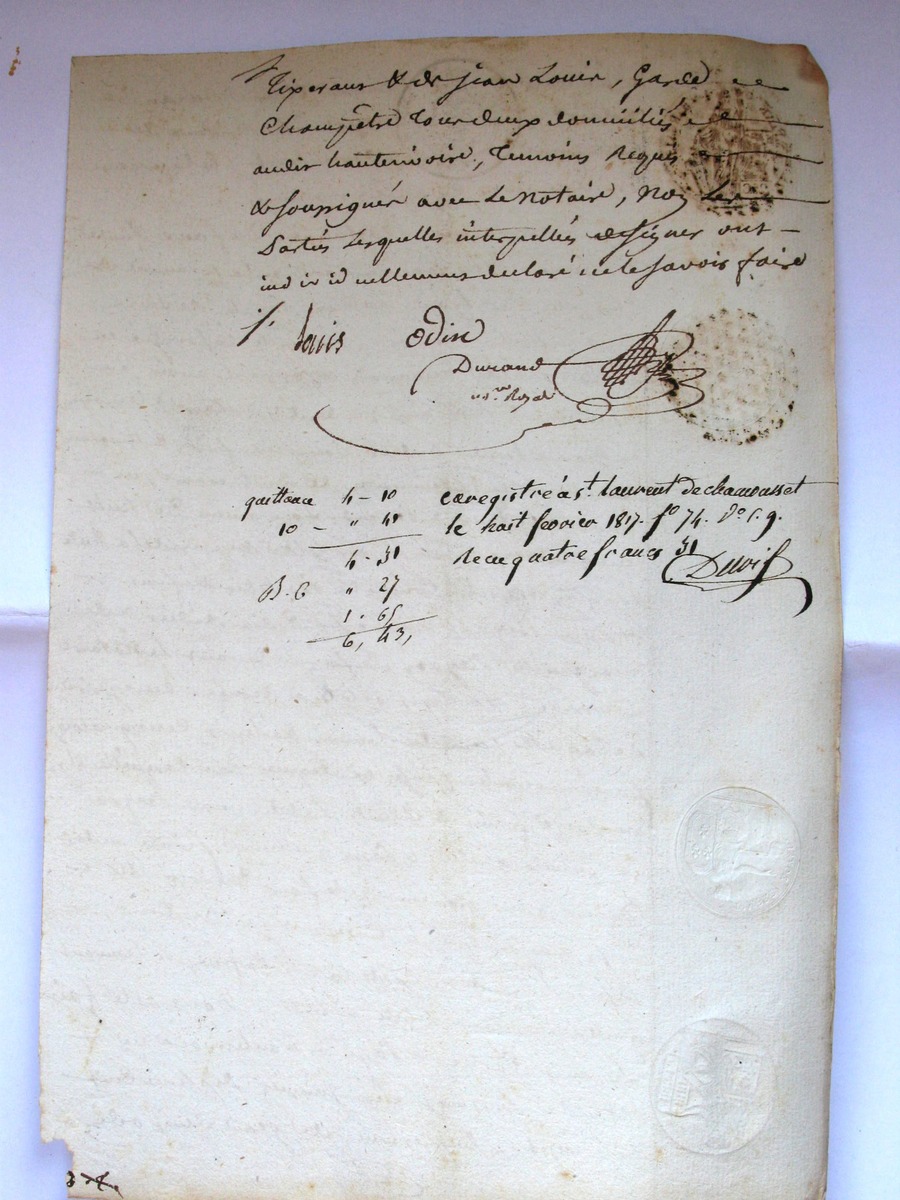 Tixeraux & de Jean Louis, Garde
Champêtre Tous deux domiciliés
audit hauterivoire, Temoins Requis
& soussignés avec Le Notaire, Non Les
Parties Lesquelles interpellées de Signer ont
individuellement declaré ne le savoir faire
Louis Odin
Durand
no.re Royal
quittance 4 - 10 enregistré à s.t laurent de chamousset
10 - " 41 le huit fevrier 1817. f.o 74. v.o c. 9.
4 - 51 Recu quatre francs 51
B. C " 27
1 - 65
6, 43,